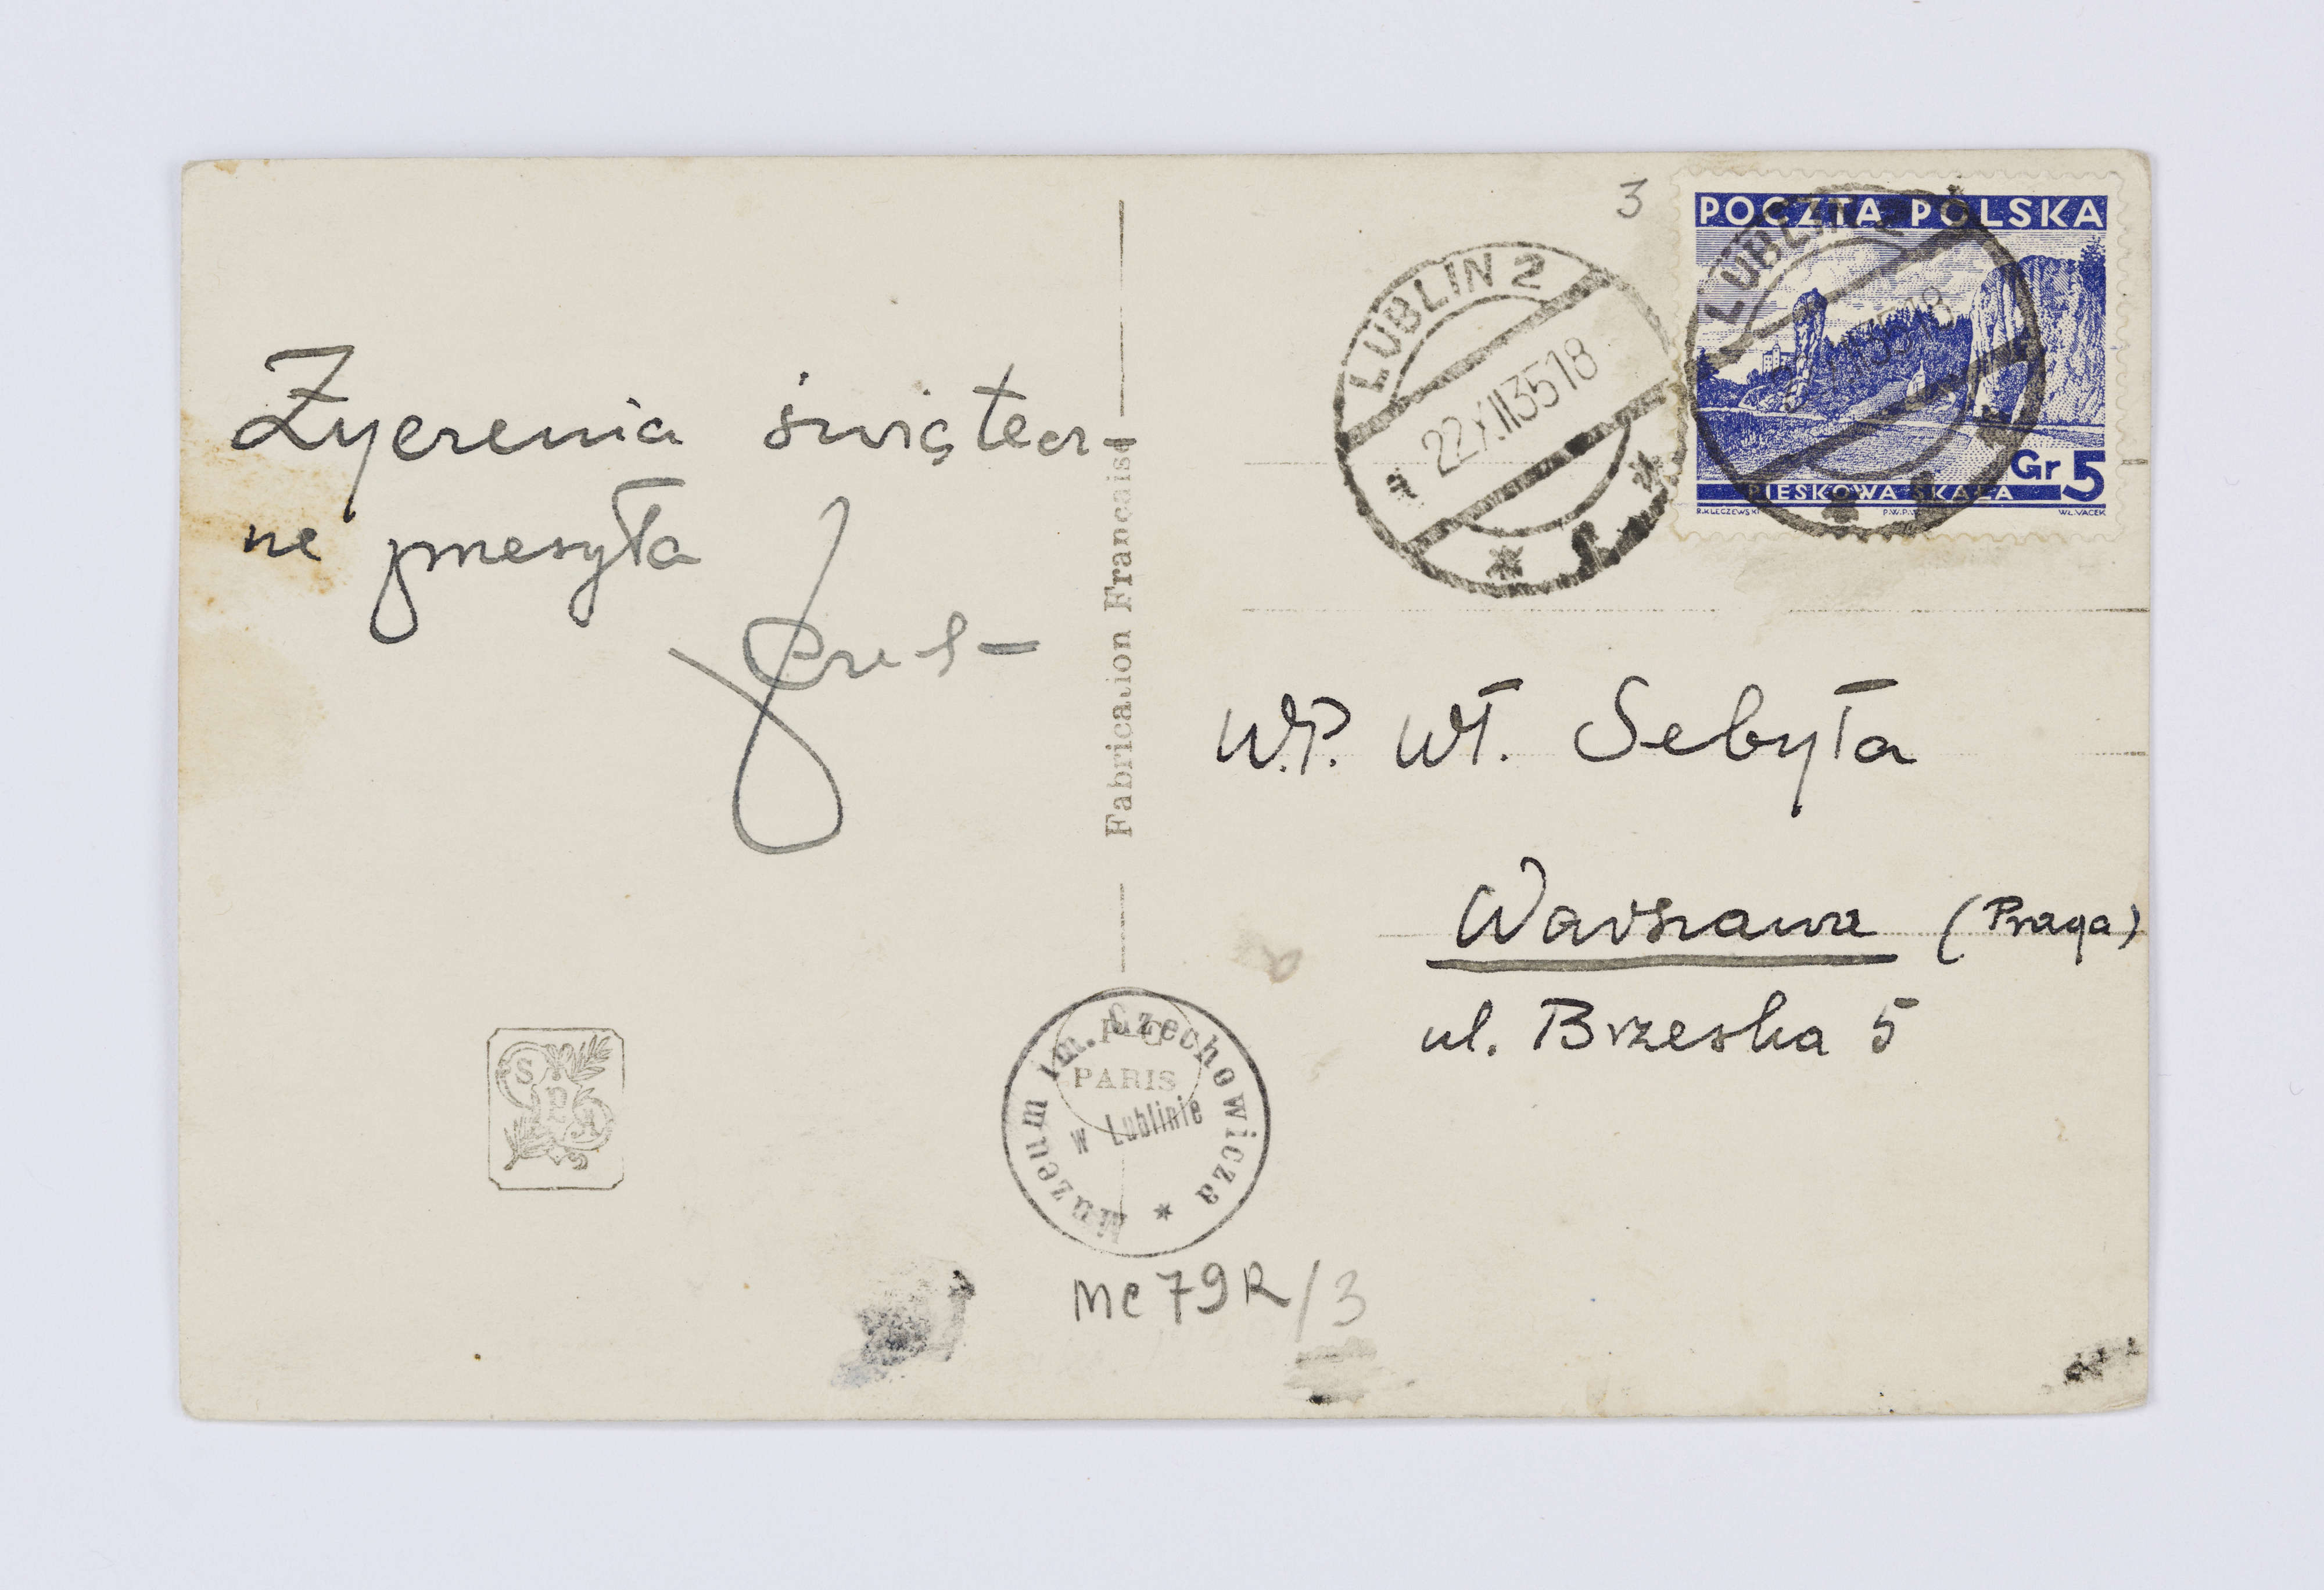 Życzenia świątecz-
ne przesyła
Fabrication Française
3
LUBLIN 2
22.XII35 18
a
POCZTA POLSKA
LUBLIN 2
Gr 5
PIESKOWA SKAŁA
R.KLECZEWSKI P.W.P.W. WŁ.VACEK
W.P. Wł. Sebyła
Warszawa (Praga)
ul. Brzeska 5
PARIS
Muzeum im. Czechowicza
w Lublinie
MC79R/3